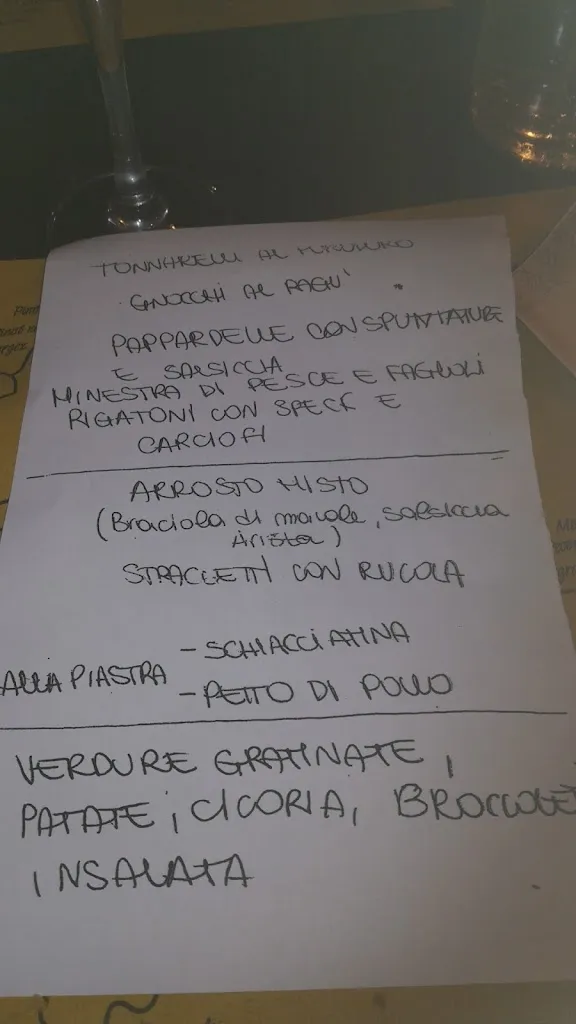 TONNARELLI AL
GNOCCHI AL RAGU'
PAPPARDELLE CON SPUNTATURE
E SALSICCIA
MINESTRA DI PESCE E FAGIOLI
RIGATONI CON SPECK E
CARCIOFI
ARROSTO MISTO
(Braciola di maiale, salsiccia
Arista)
STRACCETTI CON RUCOLA
- SCHIACCIATINA
ALLA PIASTRA
- PETTO DI POLLO
VERDURE GRATINATE,
PATATE, CICORIA, BROCCOLETTI
INSALATA